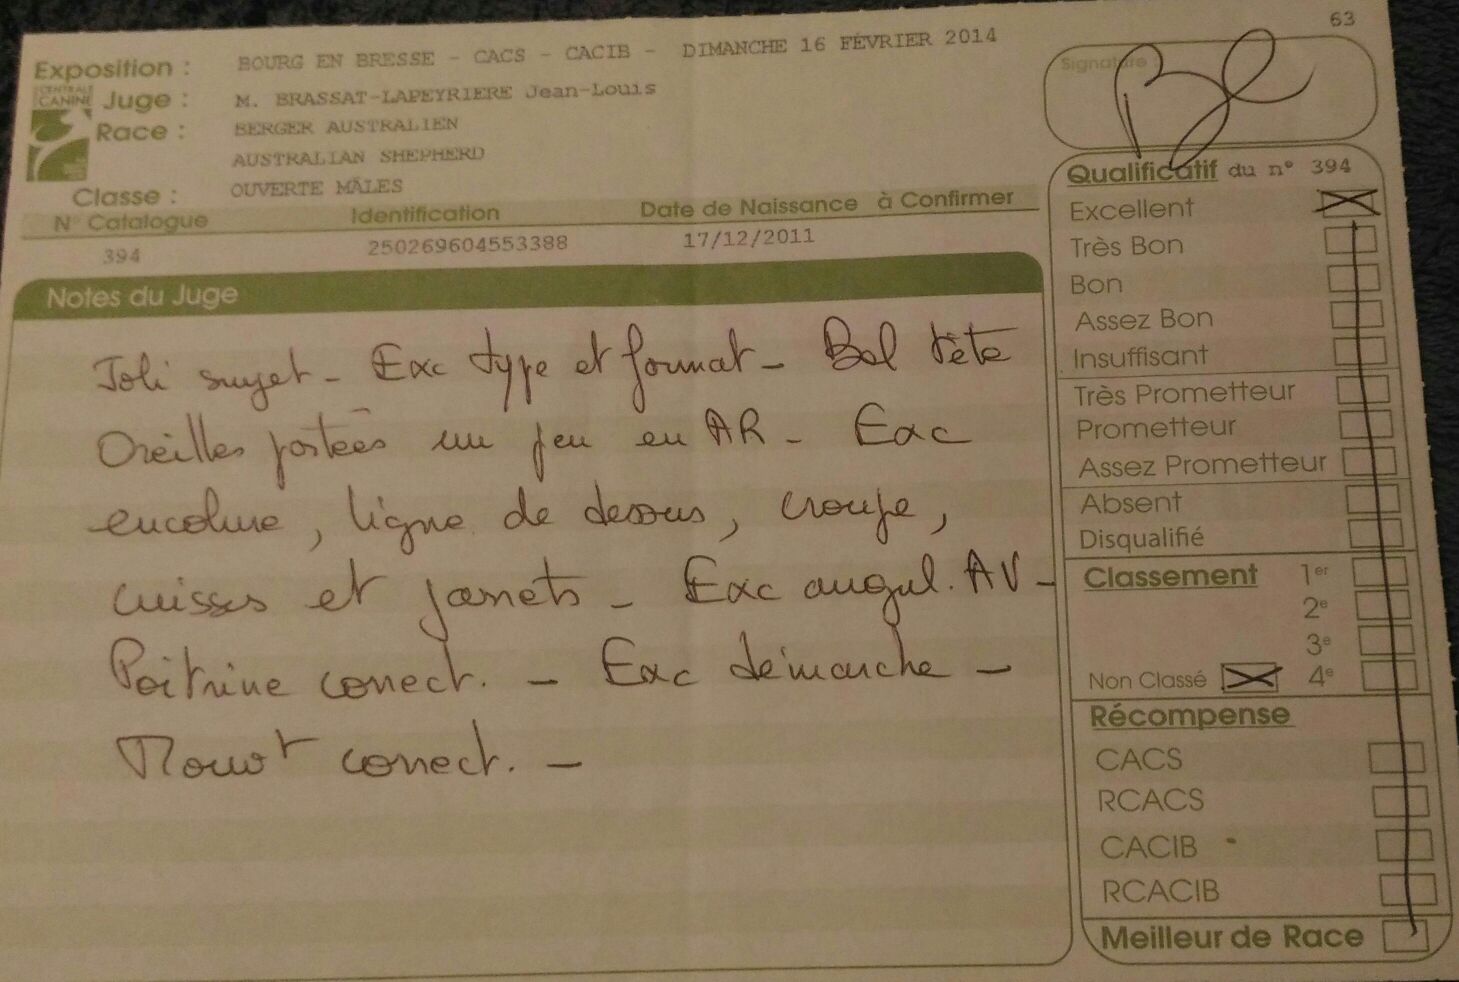 63
Exposition : BOURG EN BRESSE - CACS - CACIB - DIMANCHE 16 FÉVRIER 2014
CENTRALE
CANINE
Juge : M. BRASSAT-LAPEYRIERE Jean-Louis
Race : BERGER AUSTRALIEN
AUSTRALIAN SHEPHERD
Classe : OUVERTE MÂLES
N° Catalogue Identification Date de Naissance à Confirmer
394 250269604553388 17/12/2011
Notes du Juge
Joli sujet - Exc type et format - Bel tête
Oreilles portées un peu en AR - Exc
encolure, ligne de dessus, croupe,
cuisses et jarrets - Exc angul. AV -
Poitrine correct. - Exc démarche -
Mouvt correct. -
Signature
Qualificatif du n° 394
Excellent
Très Bon
Bon
Assez Bon
Insuffisant
Très Prometteur
Prometteur
Assez Prometteur
Absent
Disqualifié
Classement 1er
2e
3e
Non Classé 4e
Récompense
CACS
RCACS
CACIB
RCACIB
Meilleur de Race